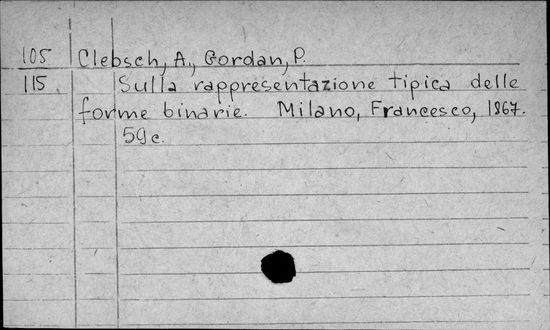 105 Clebsch, A., Gordan, P.
115 Sulla rappresentazione tipica delle
forme binarie. Milano, Francesco, 1867.
59c.